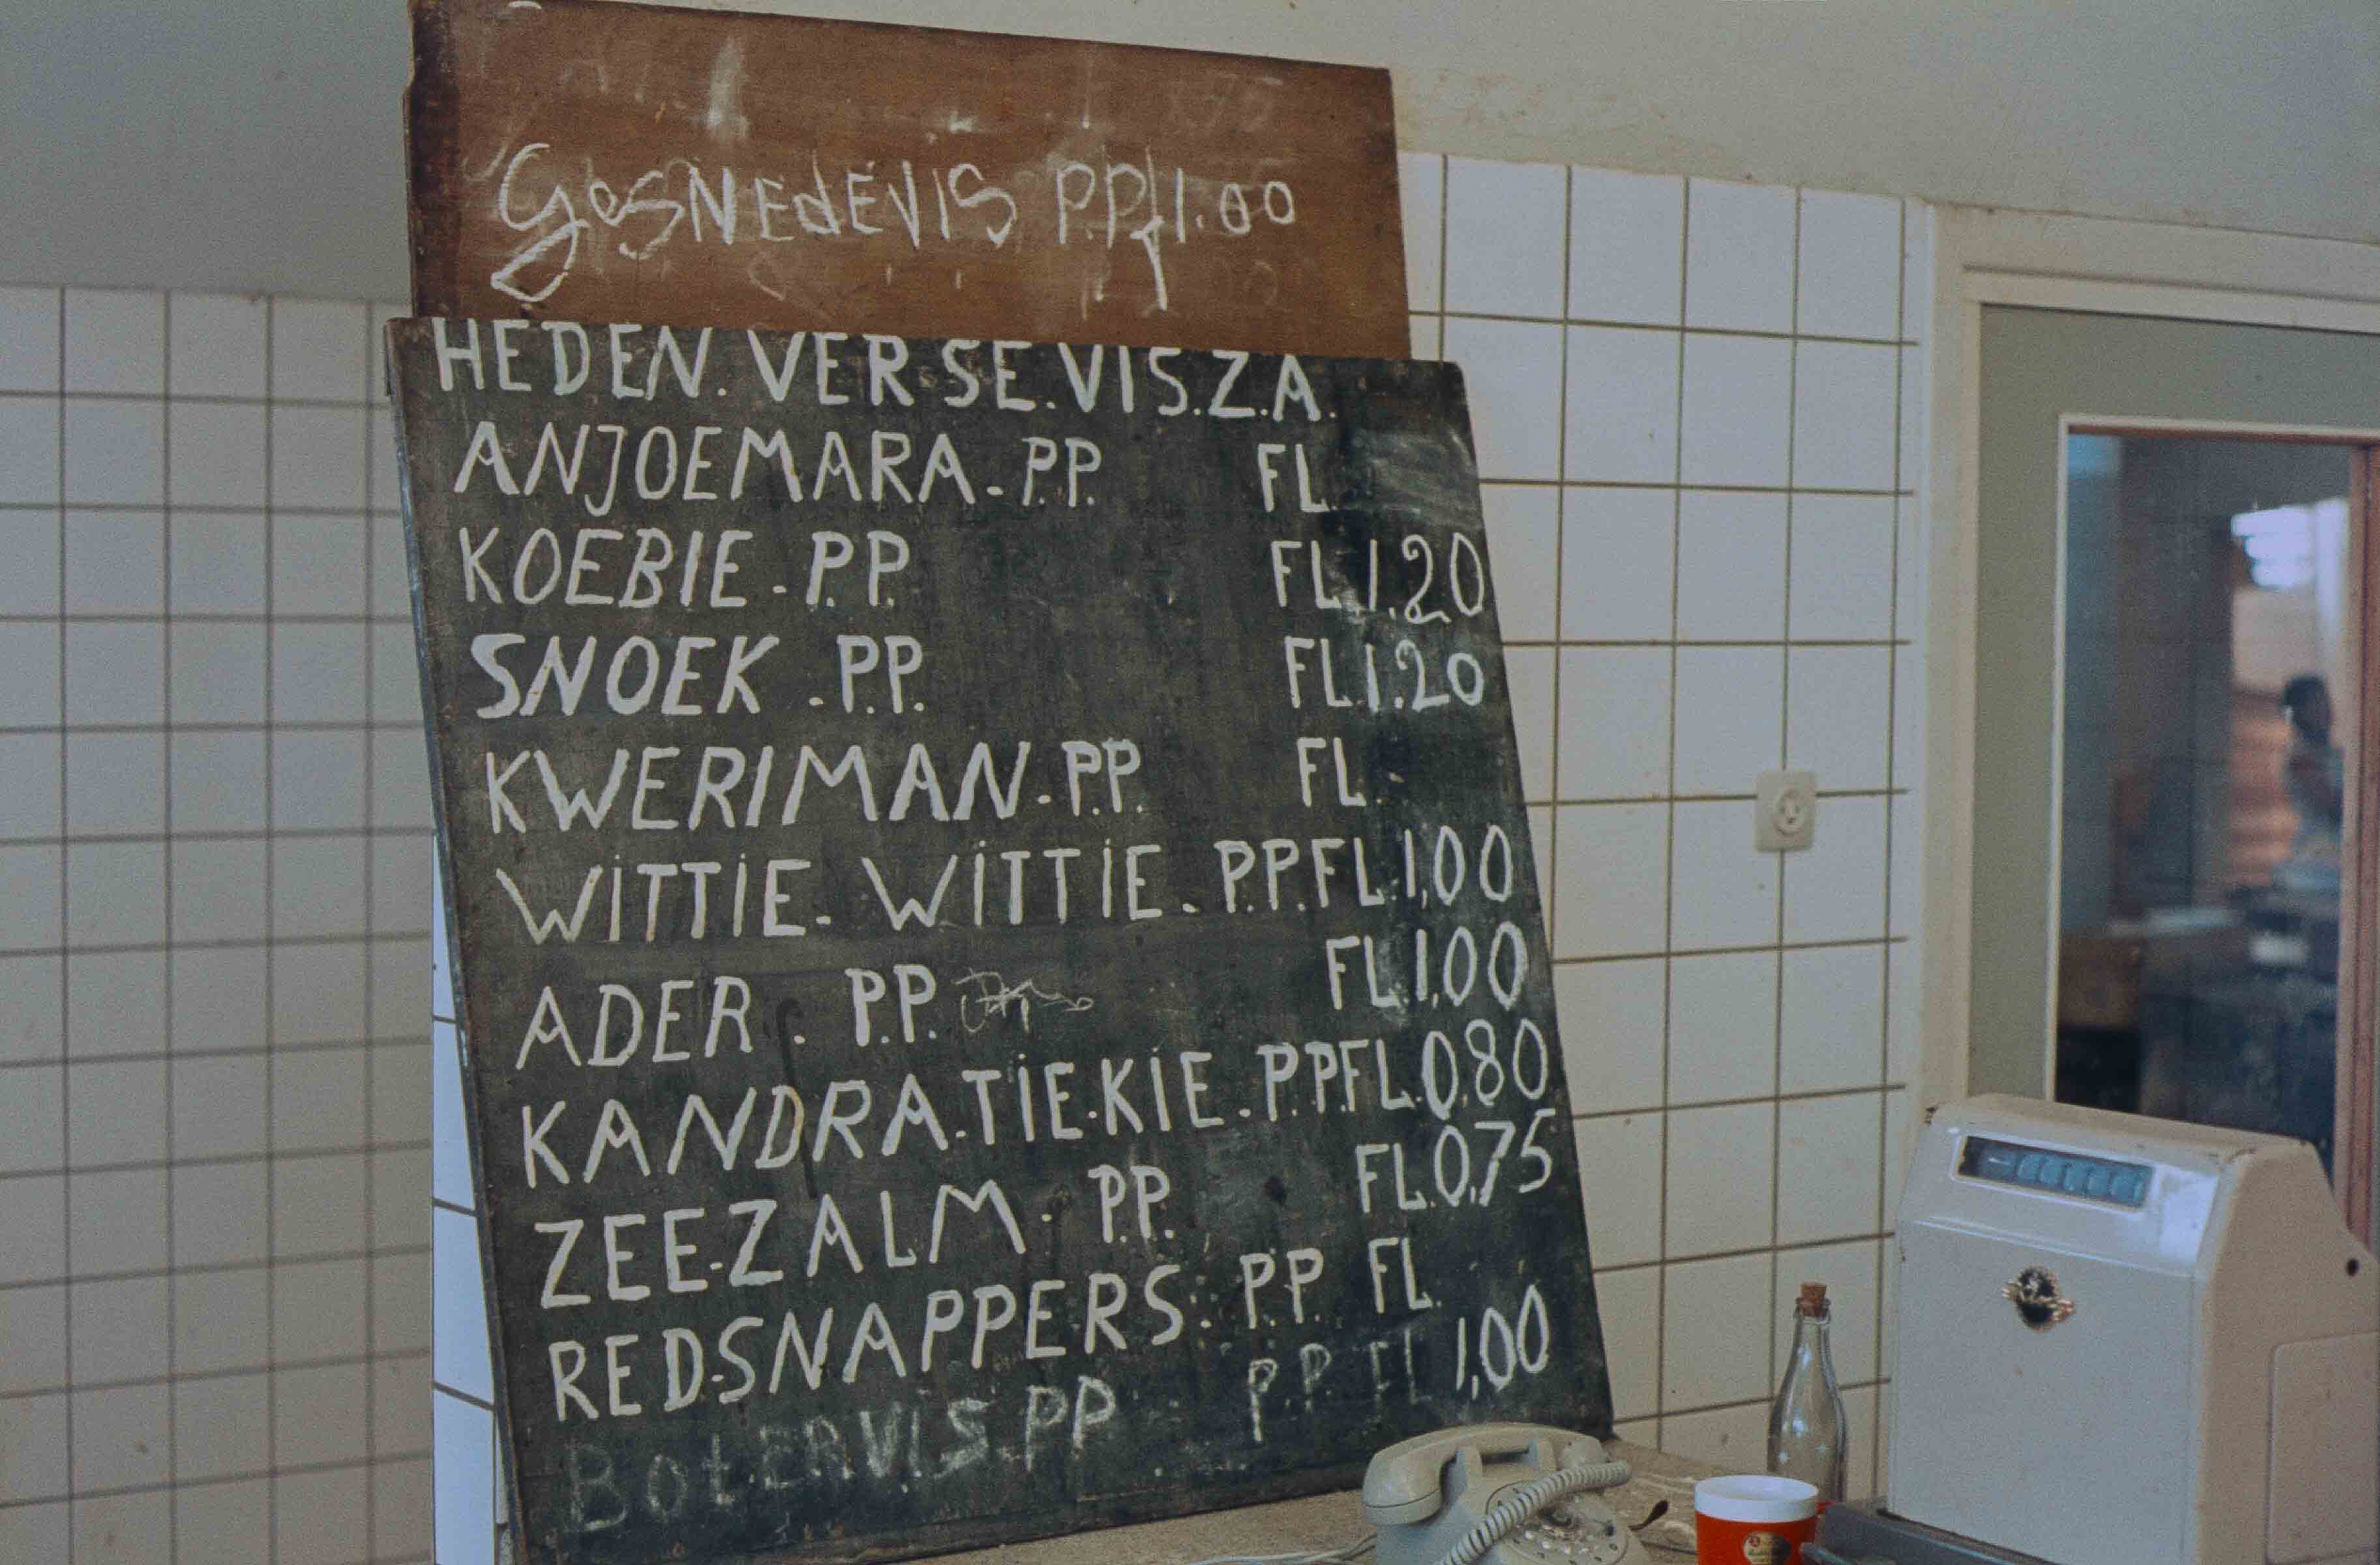 GesNEdEVIS P.P. f 1.00
HEDEN.VERSE.VIS.Z.A.
ANJOEMARA.P.P. FL.
KOEBIE.P.P. FL.1.20
SNOEK.P.P. FL.1.20
KWERIMAN.P.P. FL.
WITTIE.WITTIE.P.P.FL.1,00
ADER.P.P. FL.1,00
KANDRA.TIE.KIE.P.P.FL.0,80
ZEE.ZALM.P.P. FL.0,75
RED.SNAPPERS.P.P. FL.
BOtERVIS PP P.P. FL 1,00